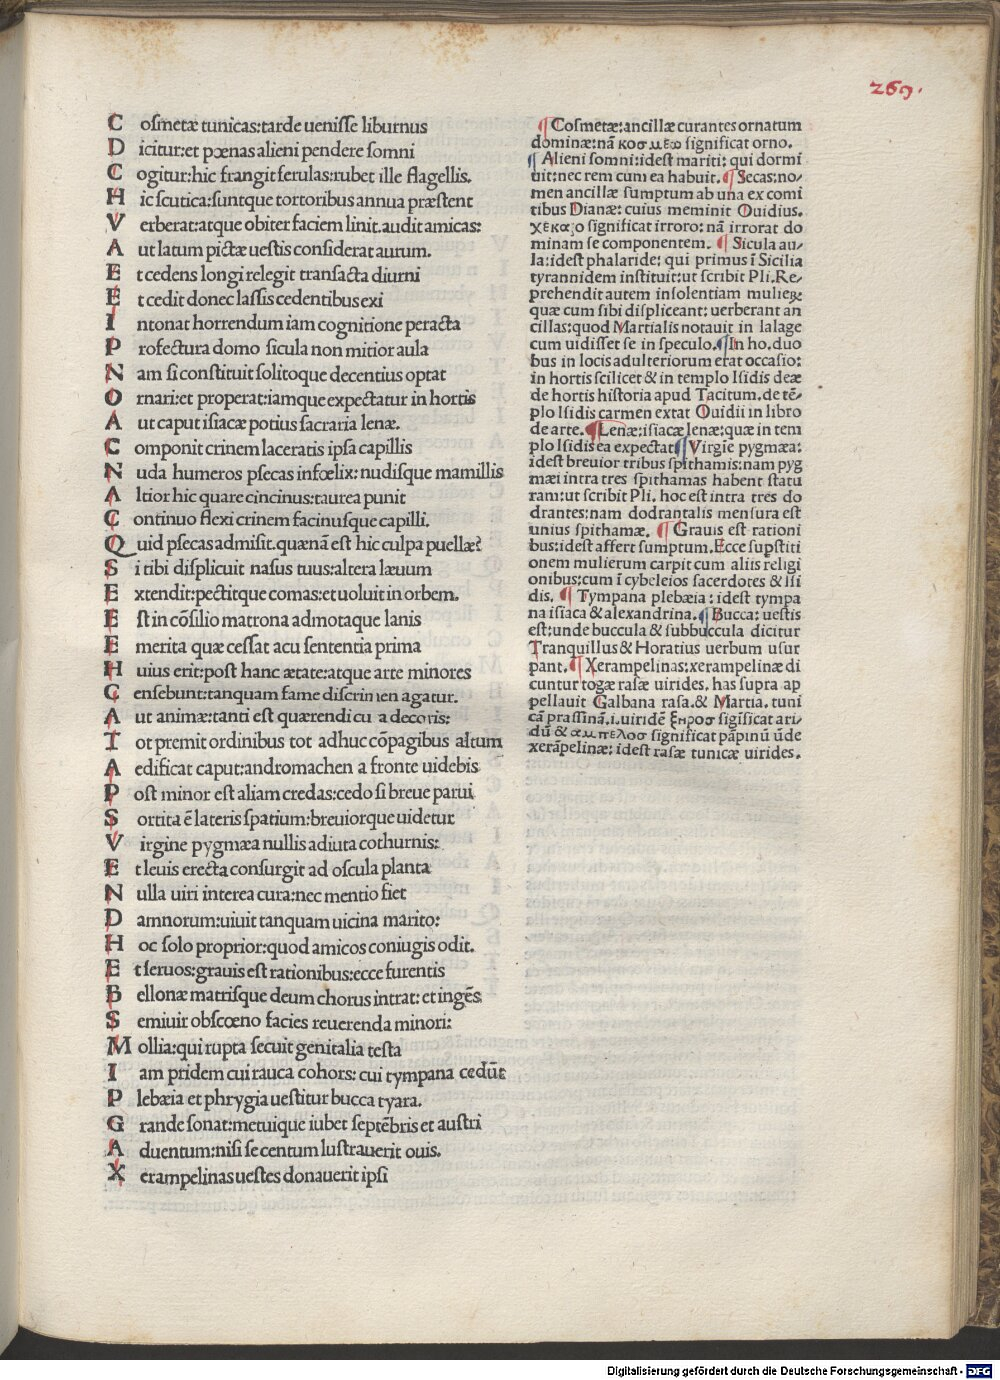 269.
Cosmetæ tunicas:tarde uenisse liburnus
Dicitur:et pœnas alieni pendere somni
Cogitur:hic frangit ferulas:rubet ille flagellis.
Hic scutica:suntque tortoribus annua præstent
Verberat:atque obiter faciem linit.audit amicas:
Aut latum pictæ uestis considerat aurum.
Et cedens longi relegit transacta diurni
Et cedit donec lassis cedentibus exi
Intonat horrendum iam cognitione peracta
Profectura domo sicula non mitior aula
Nam si constituit solitoque decentius optat
Ornari:et properat:iamque expectatur in hortis
Aut caput isiacæ potius sacraria lenæ.
Componit crinem laceratis ipsa capillis
Nuda humeros psecas infœlix:nudisque mamillis
Altior hic quare cincinus:taurea punit
Continuo flexi crinem facinusque capilli.
Quid psecas admisit.quænā est hic culpa puellæ?
Si tibi displicuit nasus tuus:altera læuum
Extendit:pectitque comas:et uoluit in orbem.
Est in cōsilio matrona admotaque lanis
Emerita quæ cessat acu sententia prima
Huius erit:post hanc ætate:atque arte minores
Censebunt:tanquam fame discrimen agatur.
Aut animæ:tanti est quærendi cu a decoris:
Tot premit ordinibus tot adhuc cōpagibus altum
Aedificat caput:andromachen a fronte uidebis
Post minor est aliam credas:cedo si breue parui
Sortita ē lateris spatium:breuiorque uidetur
Virgine pygmæa nullis adiuta cothurnis:
Et leuis erecta consurgit ad oscula planta
Nulla uiri interea cura:nec mentio fiet
Damnorum:uiuit tanquam uicina marito:
Hoc solo proprior:quod amicos coniugis odit.
Et seruos:grauis est rationibus:ecce furentis
Bellonæ matrisque deum chorus intrat: et ingēs
Semiuir obscœno facies reuerenda minori:
Mollia:qui rupta secuit genitalia testa
Iam pridem cui rauca cohors: cui tympana cedūt
Plebæia et phrygia uestitur bucca tyara.
Grande sonat:metuique iubet septēbris et austri
Aduentum:nisi se centum lustrauerit ouis.
Xerampelinas uestes donauerit ipsi
¶Cosmetæ:ancillæ curantes ornatum
dominæ:nā κοσμεω significat orno.
¶Alieni somni:idest mariti: qui dormi
uit:nec rem cum ea habuit.¶Secas:no/
men ancillæ sumptum ab una ex comi
tibus Dianæ: cuius meminit Ouidius.
χεκαζο significat irroro: nā irrorat do
minam se componentem. ¶Sicula au/
la:idest phalaride: qui primus ī Sicilia
tyrannidem instituit:ut scribit Pli.Re/
prehendit autem insolentiam mulieꝝ
quæ cum sibi displiceant: uerberant an
cillas:quod Martialis notauit in lalage
cum uidisset se in speculo.¶In ho.duo
bus in locis adulteriorum erat occasio:
in hortis scilicet & in templo Isidis deæ
de hortis historia apud Tacitum.de tē/
plo Isidis carmen extat Ouidii in libro
de arte.¶Lenæ:isiacæ lenæ:quæ in tem
plo Isidis ea expectat¶Virgīe pygmæa:
idest breuior tribus spithamis:nam pyg
mæi intra tres spithamas habent statu
ram:ut scribit Pli. hoc est intra tres do
drantes:nam dodrantalis mensura est
unius spithamæ. ¶Grauis est rationi
bus:idest affert sumptum.Ecce supstiti
onem mulierum carpit cum aliis religi
onibus:cum ī cybeleios sacerdotes & Isi
dis. ¶Tympana plebæia : idest tympa
na isiaca & alexandrina.¶Bucca: uestis
est:unde buccula & subbuccula dicitur
Tranquillus & Horatius uerbum usur
pant.¶Xerampelinas:xerampelinæ di
cuntur togæ rasæ uirides. has supra ap
pellauit Galbana rasa.& Martia. tuni
cā prassinā.i.uiridē ξηροσ sigīficat ari/
dū & αμπελοσ significat pāpinū ūde
xerāpelinæ:idest rasæ tunicæ uirides.
Digitalisierung gefördert durch die Deutsche Forschungsgemeinschaft - DFG